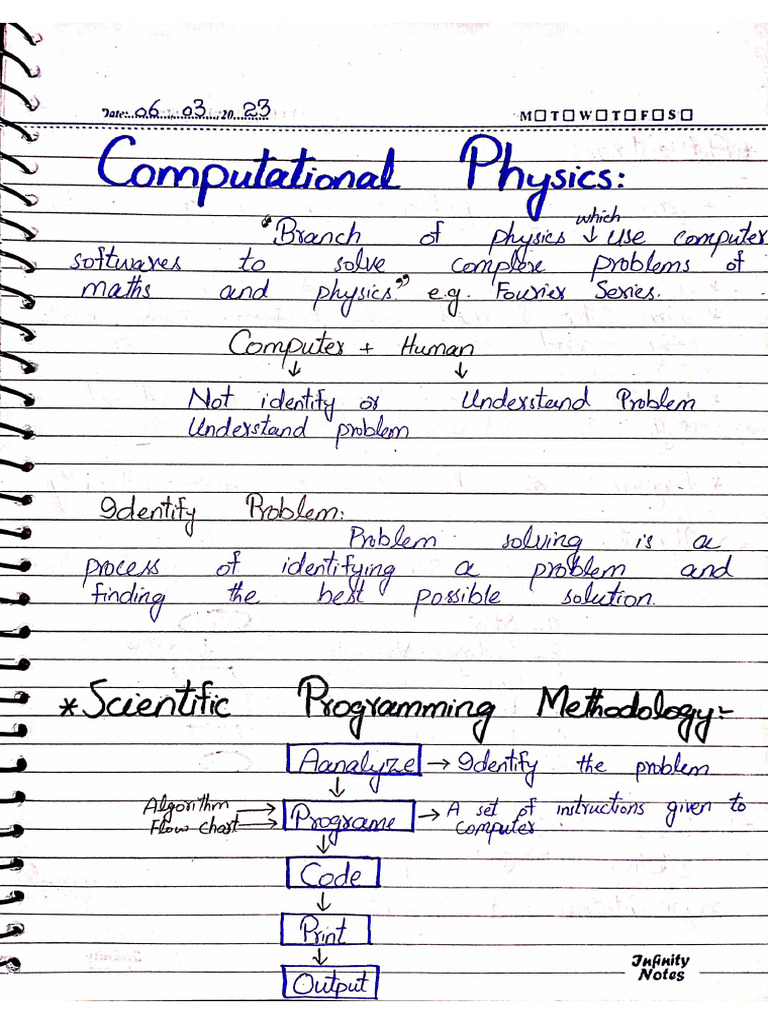 Date:..06....03...20...23....
M☐T☐W☐T☐F☐S☐
Computational Physics:
"Branch of physics ↓ use computer
which
softwares to solve complexe problems of
maths and physics." e.g. Fourier Series.
Computer + Human
↓ ↓
Not identify or Understand Problem
Understand problem
Identify Problem:
Problem solving is a
process of identifying a problem and
finding the best possible solution.
*Scientific Programming Methodology:-
Aanalyze → Identify the problem
↓
Algorithm →
Flow chart →
Programe → A set of instructions given to
computer
↓
Code
↓
Print
↓
Output
Infinity
Notes